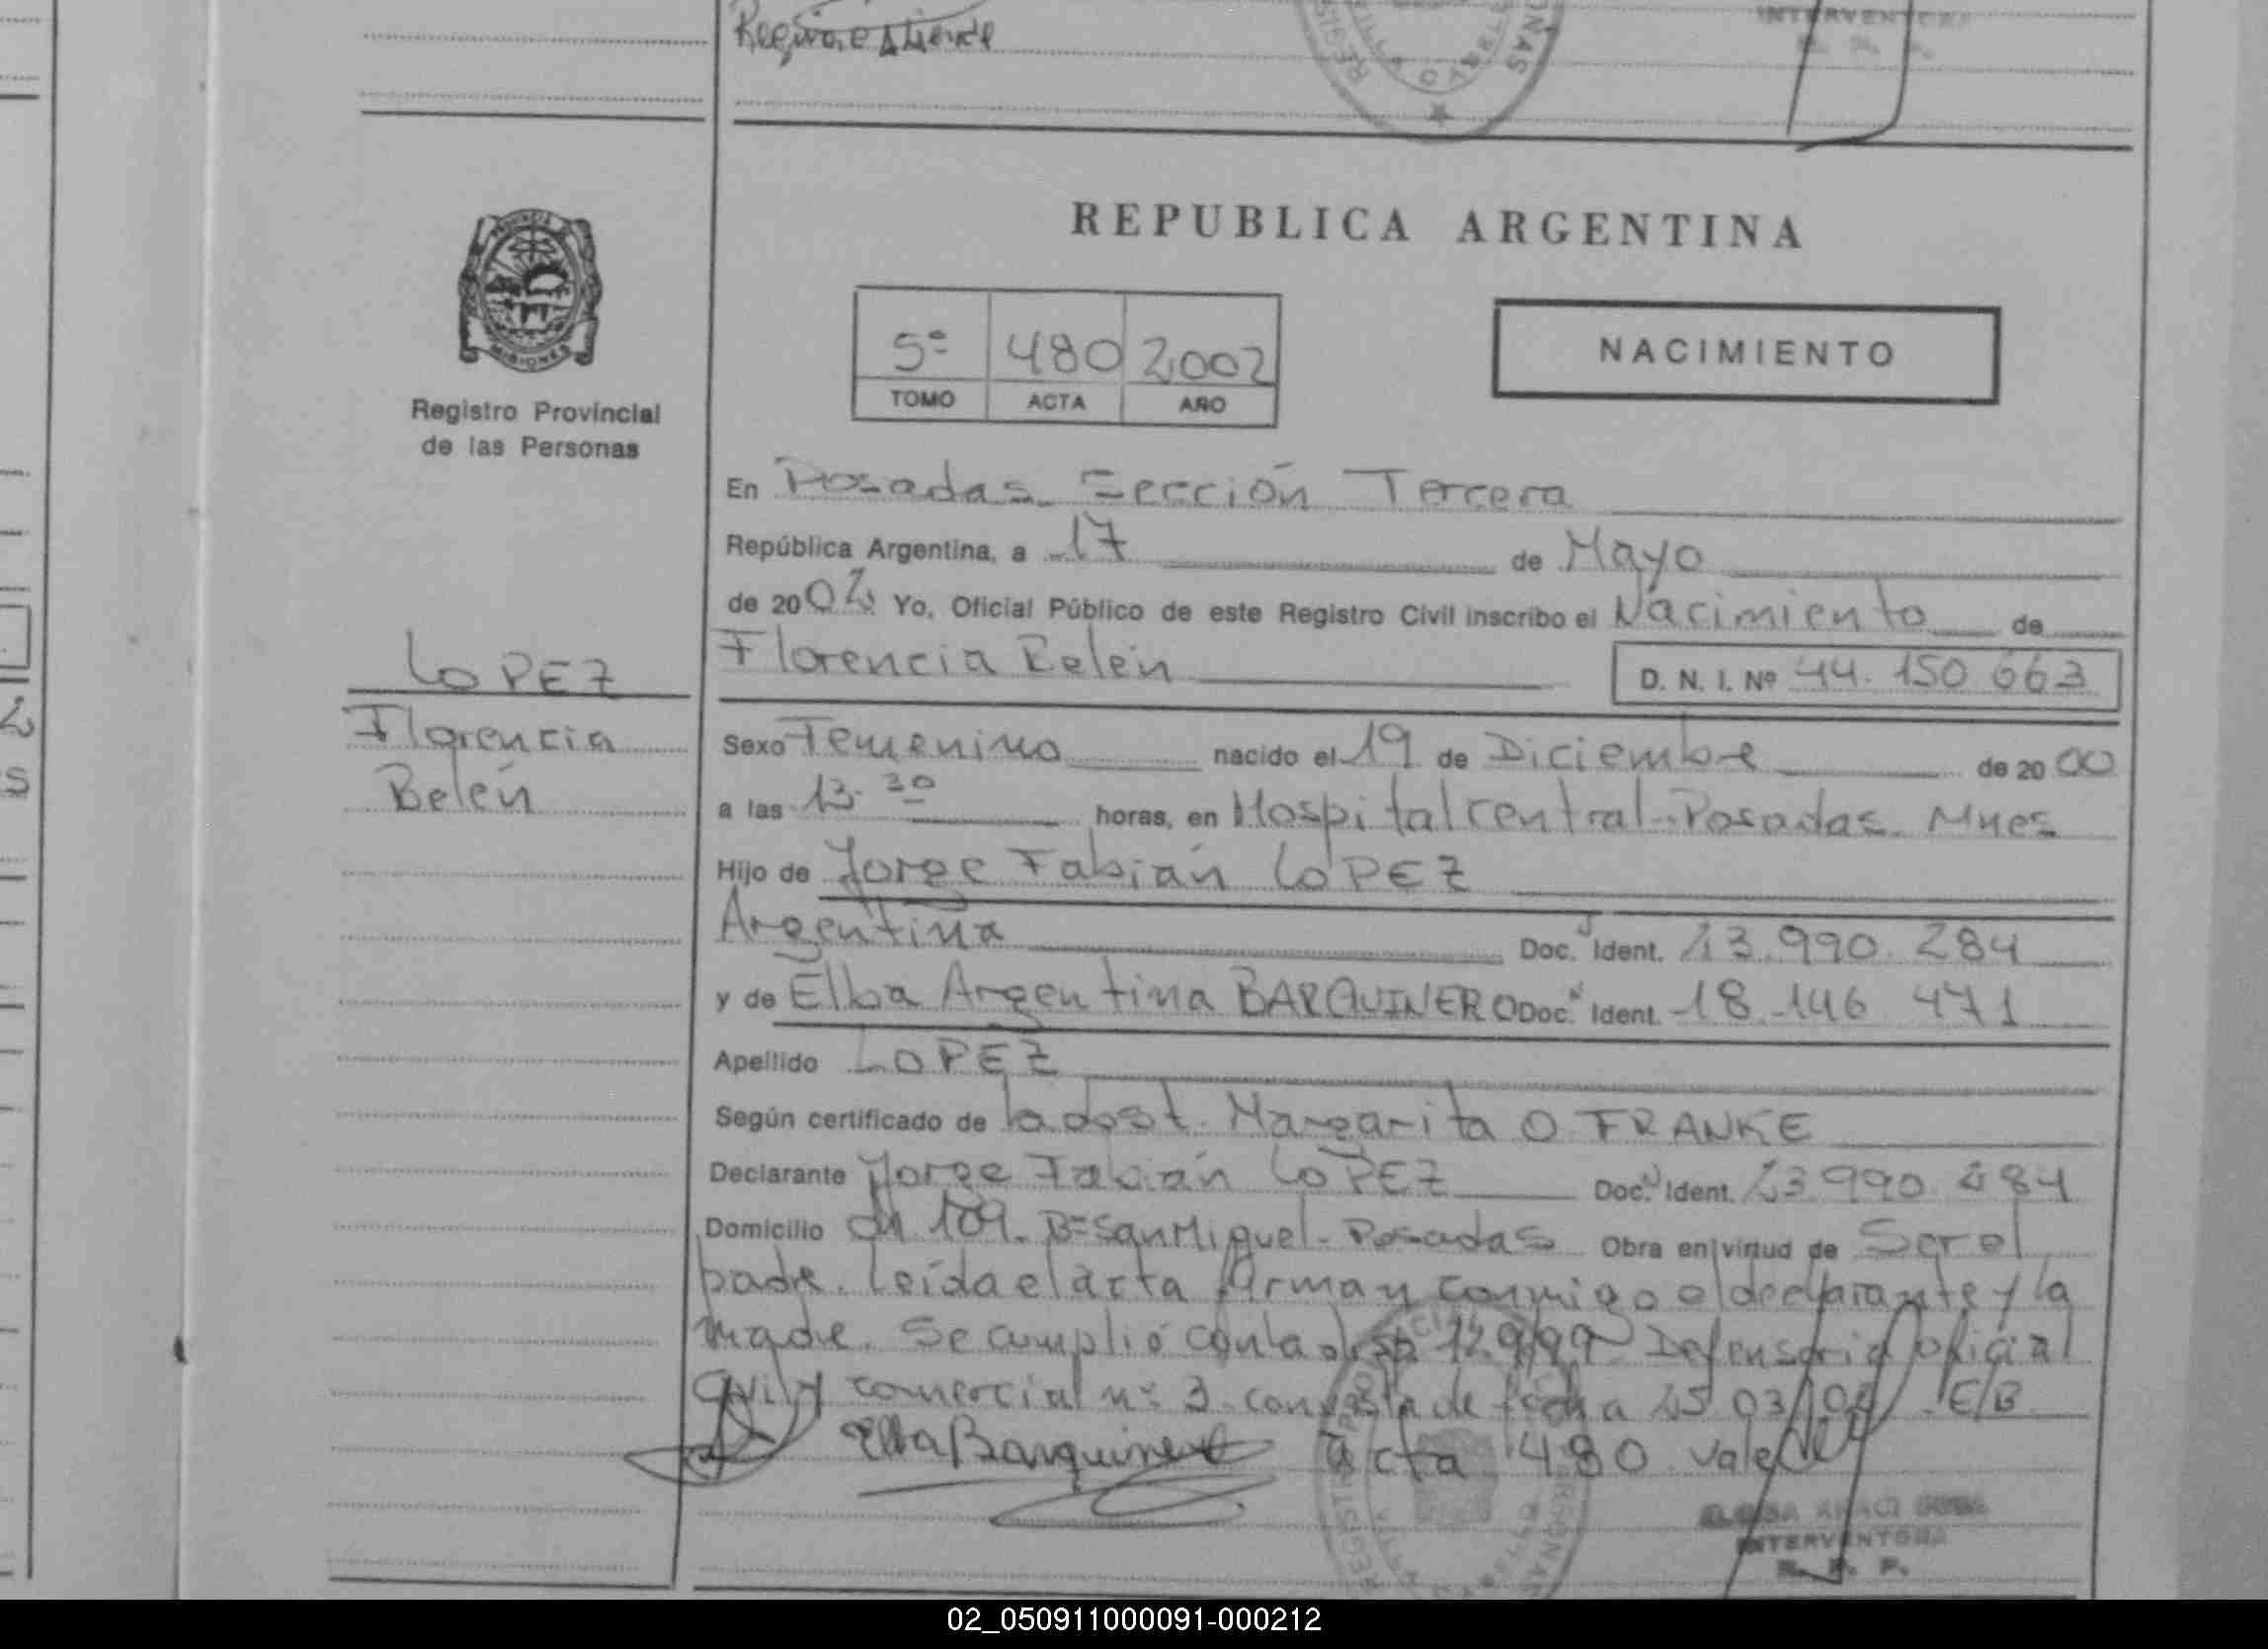 INTERVENTORA
REPUBLICA ARGENTINA
MISIONES
Registro Provincial
de las Personas
5º 480 2002
TOMO ACTA AÑO
NACIMIENTO
En Posadas Sección Tercera
República Argentina, a 17 de Mayo
de 2002 Yo, Oficial Público de este Registro Civil inscribo el Nacimiento de
Florencia Belén D. N. I. Nº 44.150 663
LOPEZ
Florencia
Belén
Sexo Femenino nacido el 19 de Diciembre de 2000
a las 13.30 horas, en Hospital central. Posadas. Mnes
Hijo de Jorge Fabián LOPEZ
Argentina Doc. Ident. 23.990.284
y de Elba Argentina BARQUINERO Doc. Ident. 18.146 471
Apellido LOPEZ
Según certificado de la obst. Margarita O. FRANKE
Declarante Jorge Fabián LOPEZ Doc. Ident. 23 990 284
Domicilio Ch 109. Bº San Miguel. Posadas Obra en virtud de Ser el
padre. Leída el acta firman conmigo el declarante y la
madre. Se cumplió con la 12.999 Defensoria oficial
Civil y comercial nº 3. con fecha 25 03/02 E/B
Elba Barquinero Acta 480 vale
INTERVENTORA
R. P. P.
02_050911000091-000212